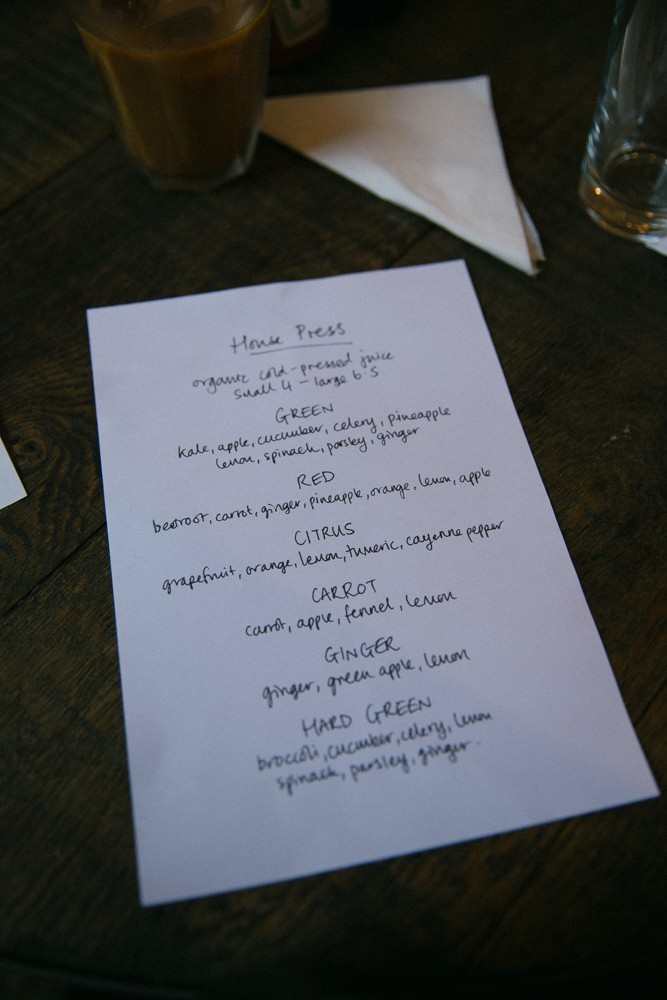 House Press
organic cold-pressed juice
small 4 - large 6.5
GREEN
kale, apple, cucumber, celery, pineapple
lemon, spinach, parsley, ginger
RED
beetroot, carrot, ginger, pineapple, orange, lemon, apple
CITRUS
grapefruit, orange, lemon, tumeric, cayenne pepper
CARROT
carrot, apple, fennel, lemon
GINGER
ginger, green apple, lemon
HARD GREEN
broccoli, cucumber, celery, lemon
spinach, parsley, ginger.